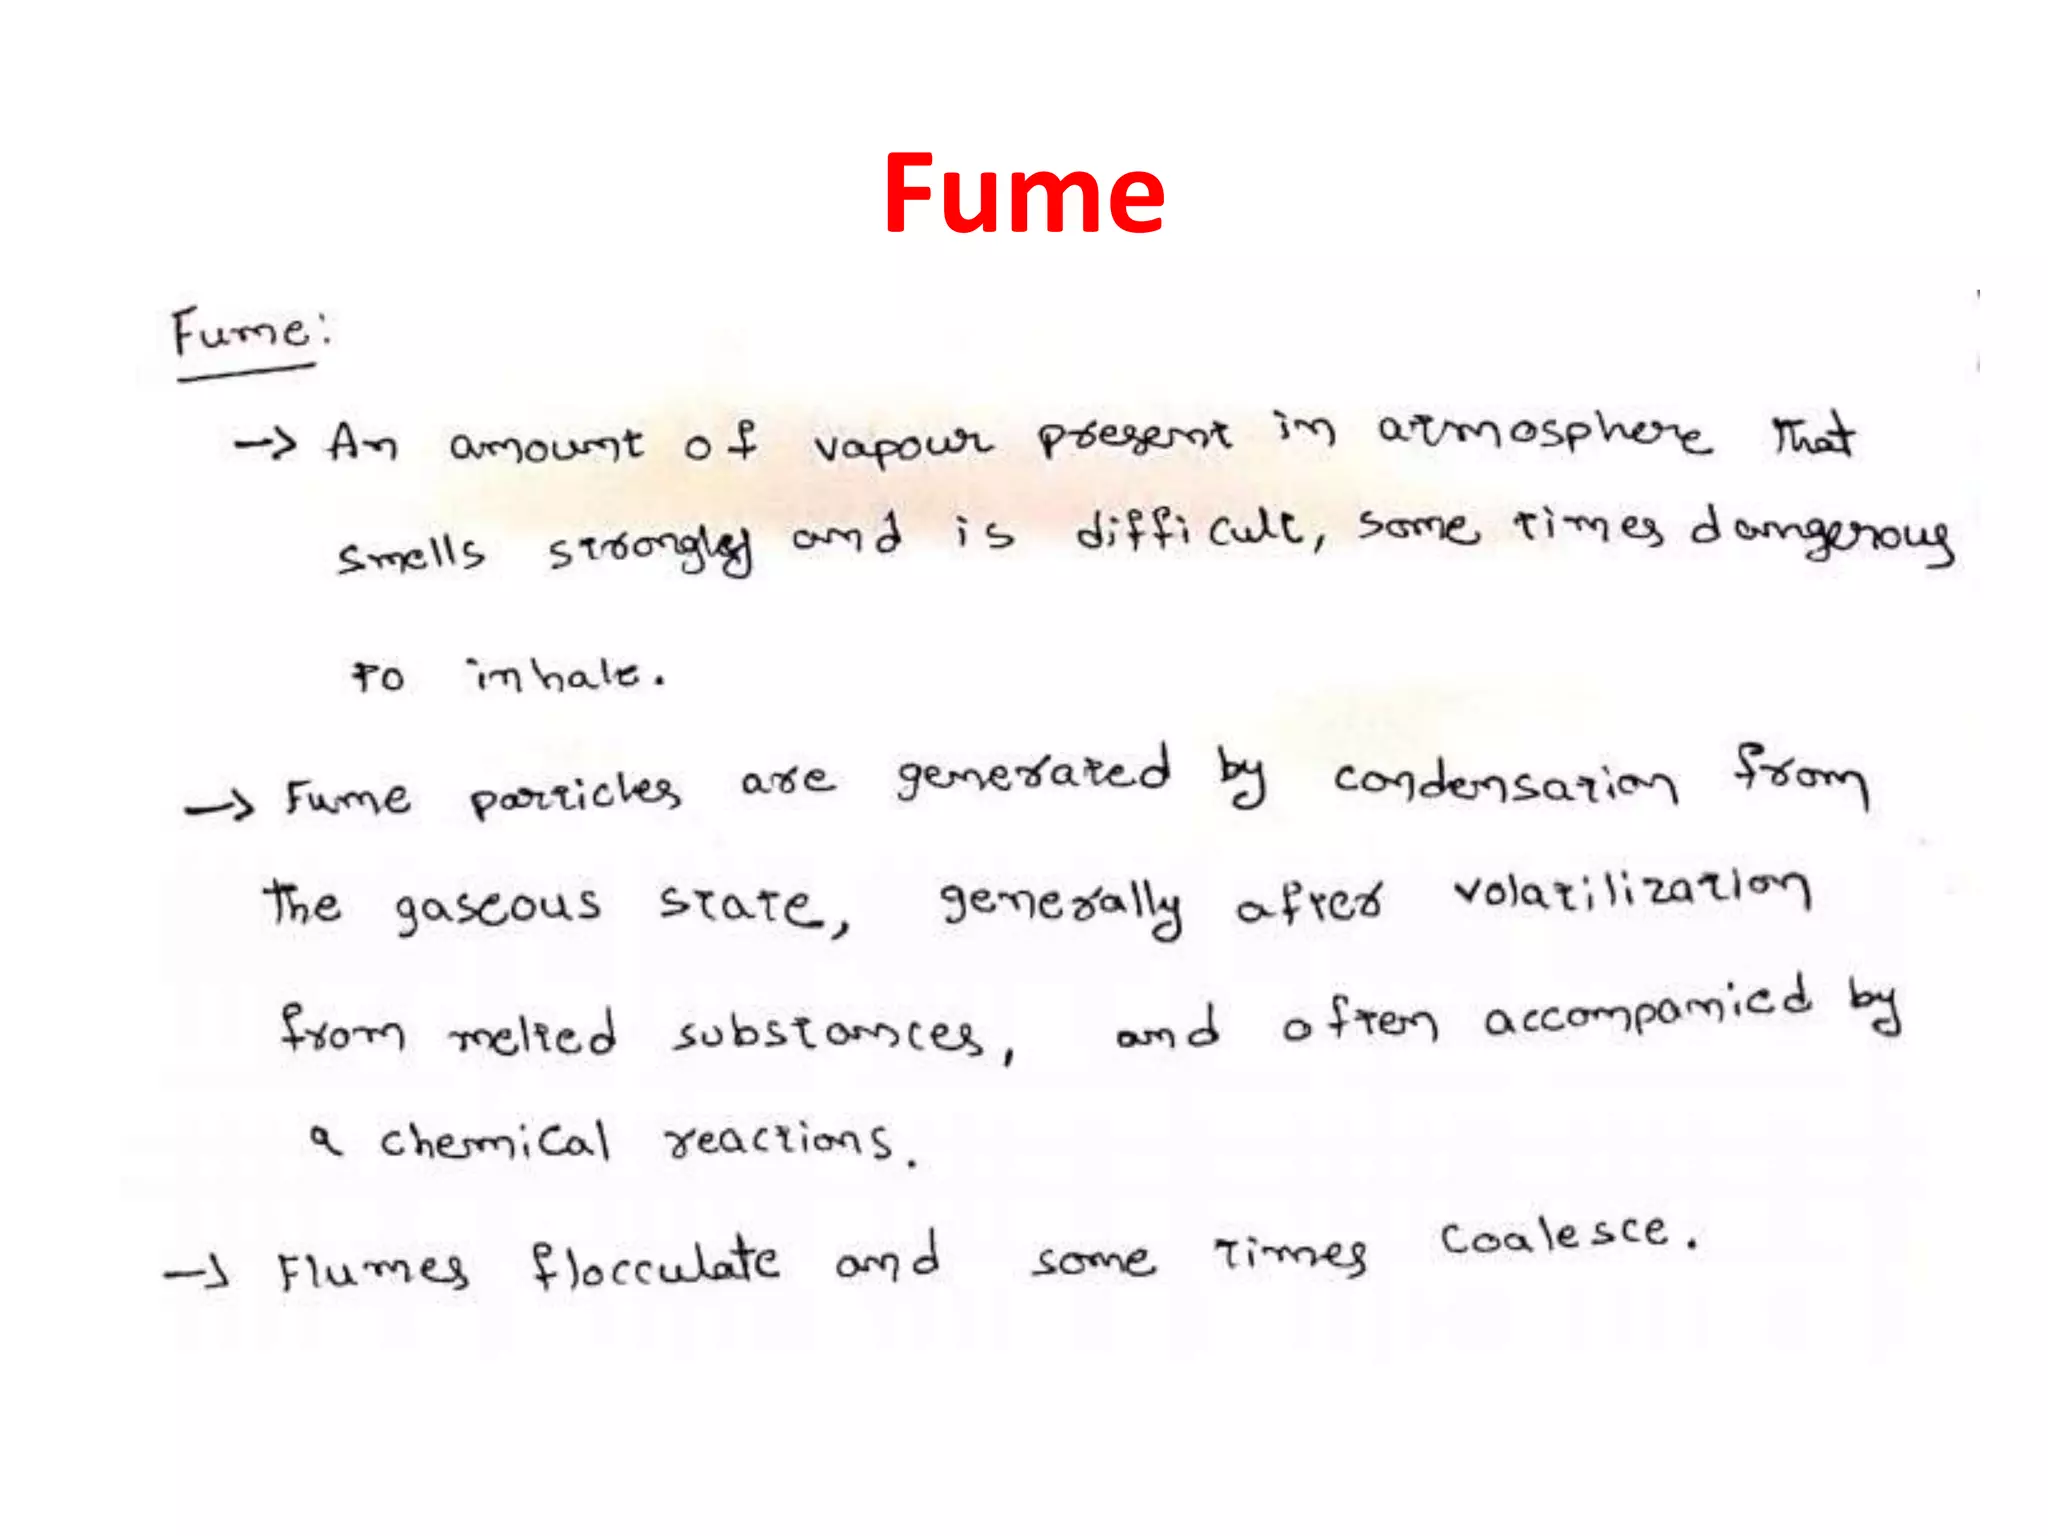 Fume
Fume:
→ An amount of vapour present in atmosphere that
smells strongly and is difficult, some times dangerous
to inhale.
→ Fume particles are generated by condensation from
the gaseous state, generally after volatilization
from melted substances, and often accompanied by
a chemical reactions.
→ Flumes flocculate and some times coalesce.